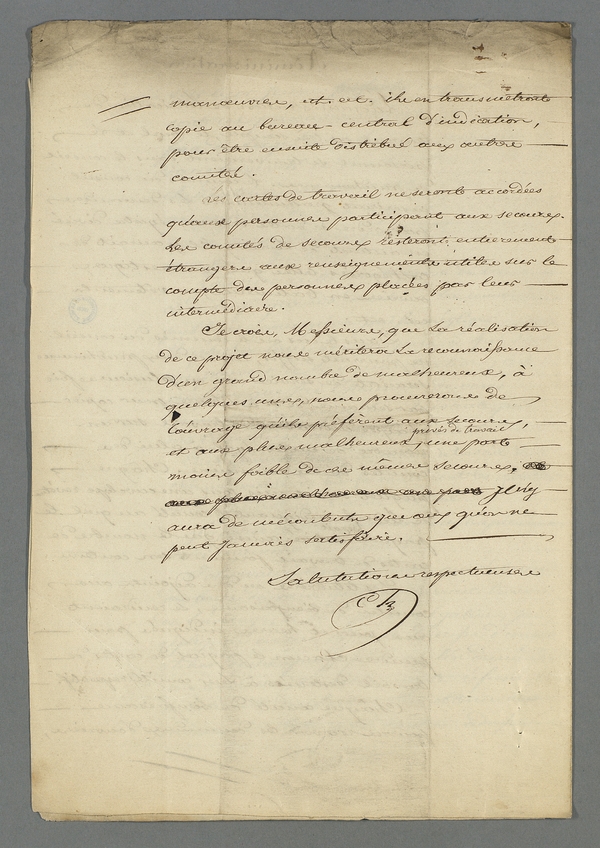 manœuvres, et. cet. ils en transmetront
copie au bureau central d'indication,
pour être ensuite distribué aux autres
comités.
Les cartes de travail ne seront accordées
qu'aux personnes participant aux secours.
Les comités de secours resteront entièrement
étrangers aux renseignements utiles sur le
compte des personnes placées par leur
intermédiaire.
Je crois, Messieurs, que la réalisation
de ce projet nous méritera la reconnoissance
d'un grand nombre de malheureux, à
quelques uns, nous procurerons de
l'ouvrage qu'ils préfèrent aux secours,
et aux plus malheureux, privés de travail, une part
moins foible de ces mêmes secours.
Il n'y
aura de mécontents que ceux qu'on ne
peut jamais satisfaire.
Salutations respectueuses